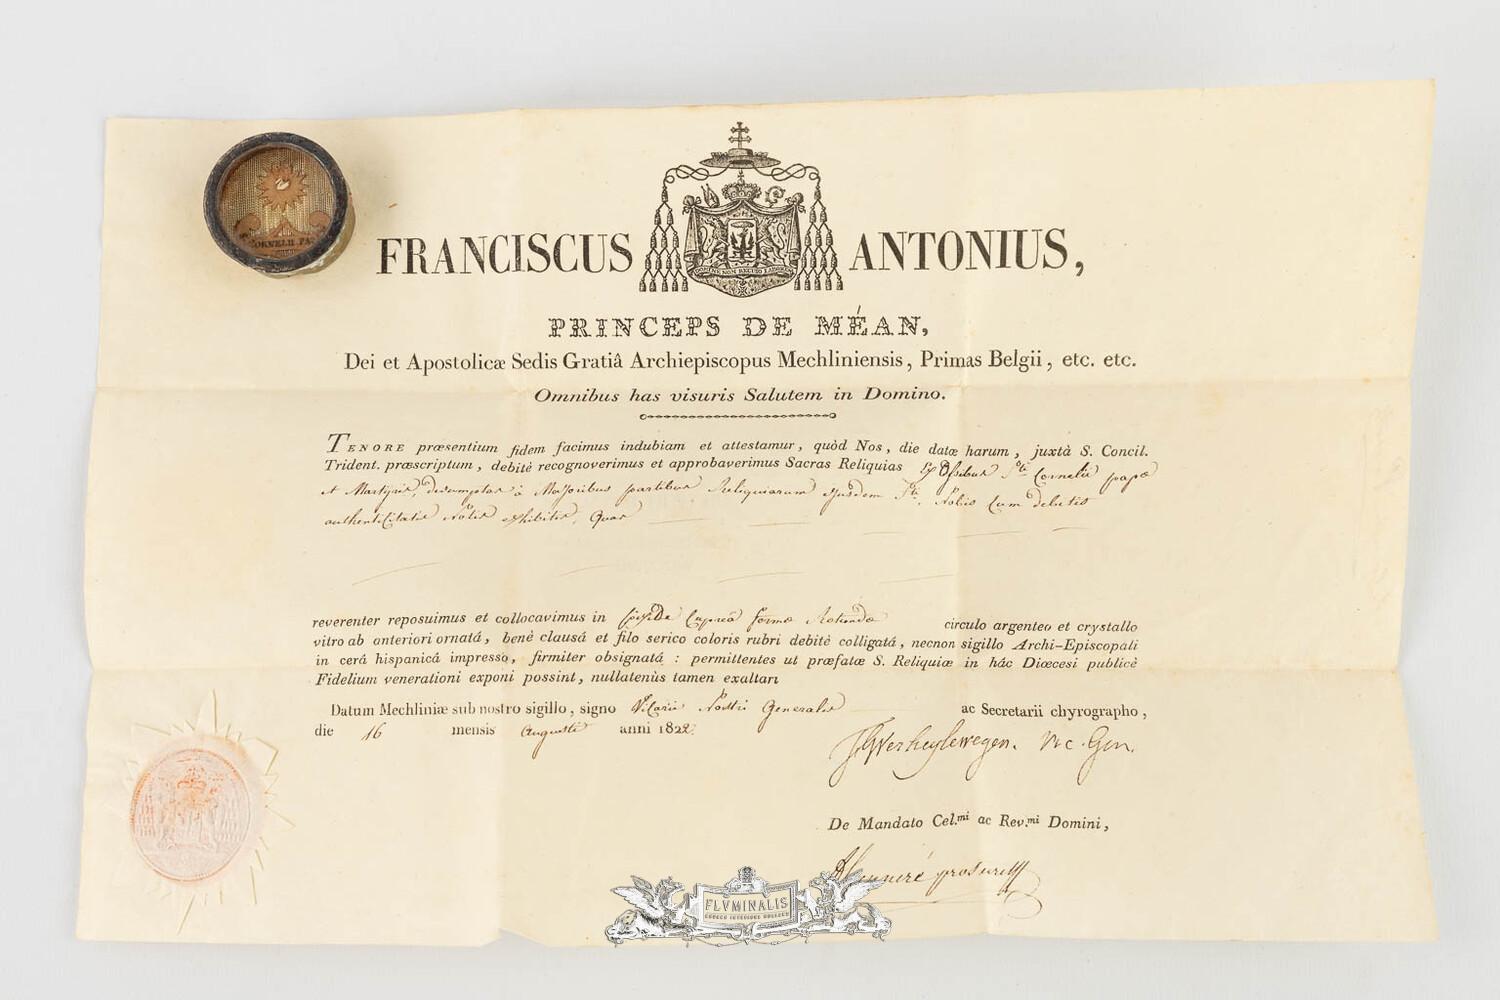 ORNELII PA
FRANCISCUS ANTONIUS,
PRINCEPS DE MÉAN,
Dei et Apostolicæ Sedis Gratiâ Archiepiscopus Mechliniensis, Primas Belgii, etc. etc.
Omnibus has visuris Salutem in Domino.
TENORE præsentium fidem facimus indubiam et attestamur, quòd Nos, die datæ harum, juxtà S. Concil.
Trident. præscriptum, debitè recognoverimus et approbaverimus Sacras Reliquias Ex Ossibus Sti Cornelii papæ
et Martyris, desumptas à Majoribus partibus Reliquiarum ejusdem Sti. Nobis Cum debitis
authenticitatis Notis exhibitis, Quas
reverenter reposuimus et collocavimus in Pixide Cupreâ formæ Rotundæ circulo argenteo et crystallo
vitro ab anteriori ornatâ, benè clausâ et filo serico coloris rubri debitè colligatâ, necnon sigillo Archi-Episcopali
in cerâ hispanicâ impresso, firmiter obsignatâ : permittentes ut præfatæ S. Reliquiæ in hâc Diœcesi publicè
Fidelium venerationi exponi possint, nullatenùs tamen exaltari
Datum Mechliniæ sub nostro sigillo, signo Vicarii Nostri Generalis ac Secretarii chyrographo,
die 16 mensis Augusti anni 1822.
Verheylewegen. Vic. Gen.
De Mandato Cel.mi ac Rev.mi Domini,
FLVMINALIS